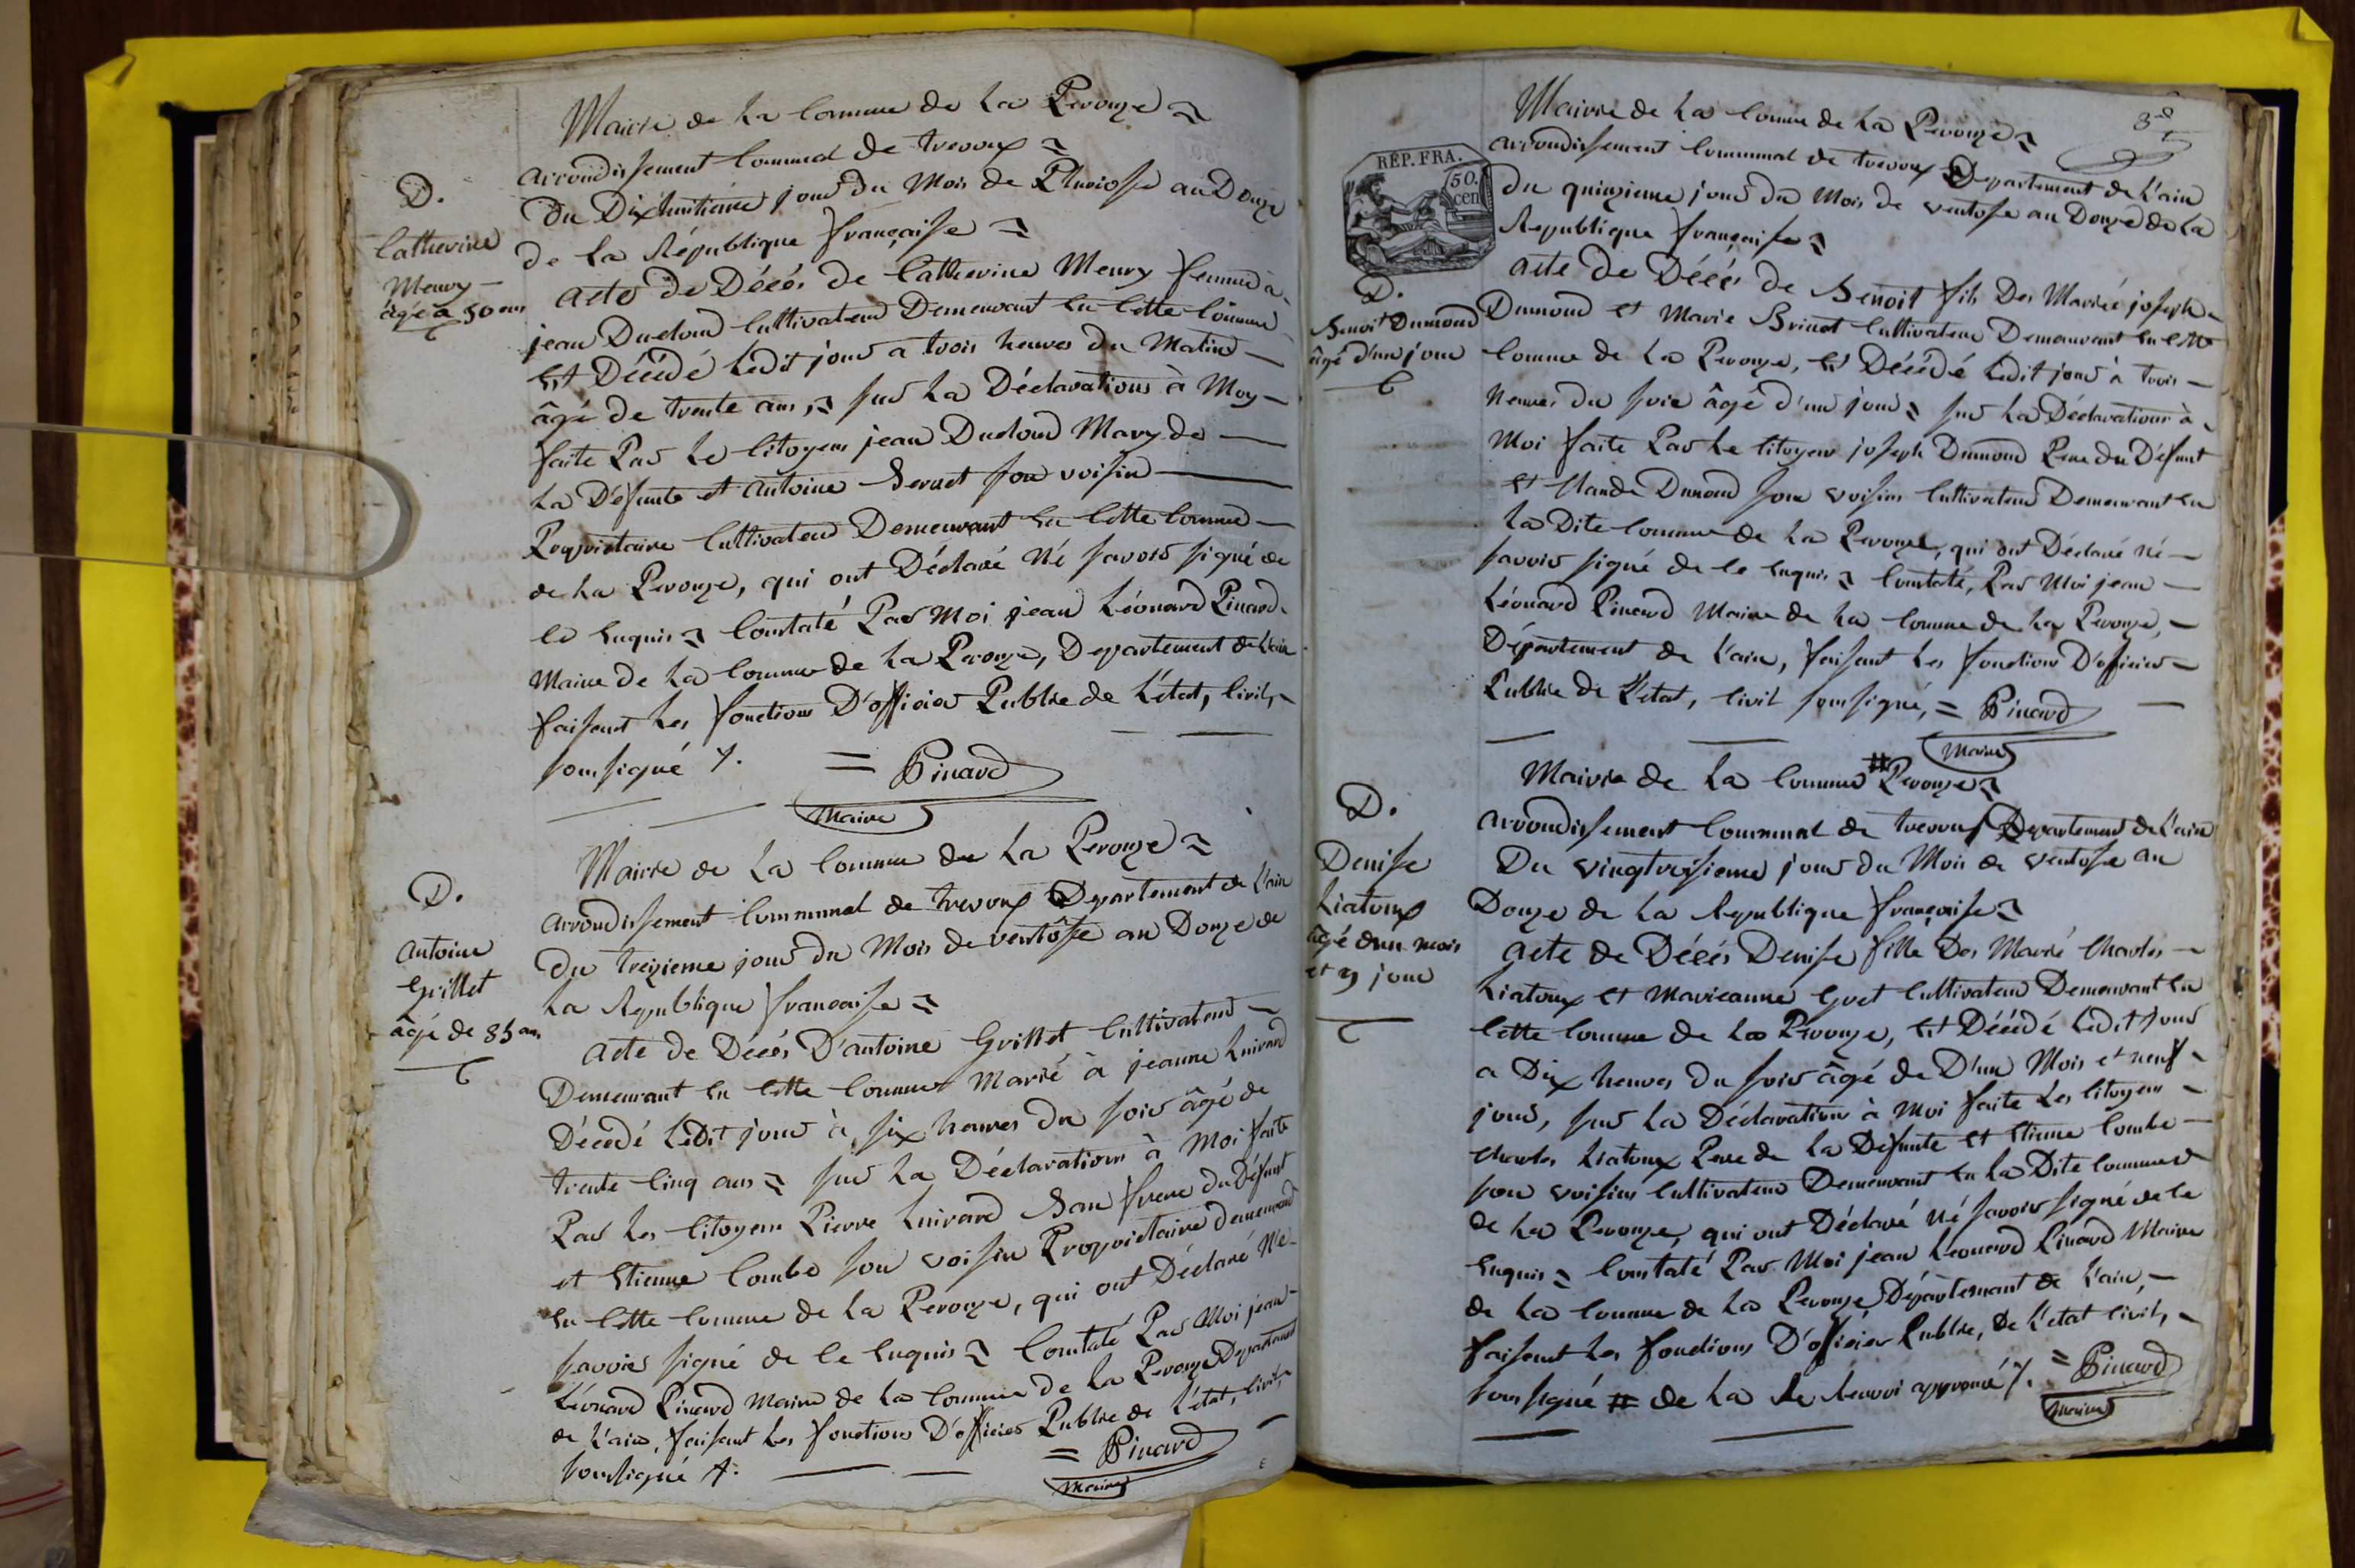 Mairie de La Commune de La Perouze
arrondissement Communal de trevoux
Du Dixhuitieme jour du Mois de Pluviosse an Douze
de La République française
D.
Catherine
Meury
âgé a 30 ans
acte de Décés de Catherine Meury femme à
jean Dudoud Cultivateur Demeurant En Cette Commune
Est Décédé Ledit jour a trois heures du Matin
âgé de trente ans, sur La Déclaration à Moy
faite Par Le Citoyens jean Dudoud Mary de
La Défunte et antoine Servet son voisin
Propriétaire Cultivateur Demeurant En Cette Commune
de La Perouze, qui ont Déclaré Né savoir signé de
Ce Enquis Constaté Par Moi jean Léonard Pinard
Maire de La Commune de La Perouze, Departement de L'ain
faisant Les fonctions D'officier Public de L'état, Civil,
soussigné
= Pinard
Maire
Mairie de La Commune de La Perouze
arrondissement Communal de trevoux Departement de L'ain
Du treizieme jour du Mois de ventôsse an Douze de
La Republique française
D.
antoine
Grillet
âgé de 35 ans
acte de Décés D'antoine Grillet Cultivateur
Demeurant En Cette Commune Marié à jeanne Luirard
Décedé Ledit jour à six heures du soir âgé de
trente Cinq ans sur La Déclaration à Moi faite
Par Les Citoyens Pierre Luirard Bau frere du Défunt
et Etienne Combe son voisin Propriétaire demeurant
En Cette Commune de La Perouze, qui ont Déclaré Ne
savoir signé de Ce Enquis Constaté Par Moi jean
Léonard Pinard Maire de La Commune de La Perouze Departement
de L'ain, faisant Les fonctions D'officier Public de L'état, Civil,
soussigné
= Pinard
Maire
3
Mairie de La Commune de La Perouze
arrondissement Communal de trevoux Departement de L'ain
REP. FRA.
50.
cen
Du quinzieme jour du Mois de ventosse an Douze de La
Republique française
D.
Benoit Dumond
âgé d'un jour
acte de Décés de Benoit fils Des Mariée joseph
Dumond et Marie Brinet Cultivateur Demeurant En Cette
Commune de La Perouze, Est Décédé Ledit jour à trois
heures du soir âgé d'un jour sur La Déclaration à
Moi faite Par Le Citoyens joseph Dumond Pere du Défunt
Et Claude Dumond son voisin Cultivateur Demeurant En
La Dite Commune de La Perouze, qui ont Déclaré Né
savoir signé de Ce Enquis Constaté, Par Moi jean
Léonard Pinard Maire de La Commune de La Perouze,
Département de L'ain, faisant Les fonctions D'officier
Public de L'état, Civil soussigné, = Pinard
Maire
Mairie de La Commune # Perouze
arrondissement Communal de trevoux Departement de L'ain
Du vingtroisieme jour du Mois de ventosse an
Douze de La Republique française
D.
Denisse
Liatoux
âgé dun mois
et 9 jour
acte de Décés Denisse fille Des Marié Charles
Liatoux Et Marieanne Guet Cultivateur Demeurant En
Cette Commune de La Perouze, Est Décédé Ledit jour
a Dix heures du soir âgé de D'un Mois et neuf
jour, sur La Déclaration à Moi faite Les Citoyens
Charles Liatoux Pere de La Défunte Et Etienne Combe
son voisins Cultivateur Demeurant En La Dite Commune
de La Perouze, qui ont Déclaré Né savoir signé de Ce
Enquis Constaté Par Moi jean Leonard Pinard Maire
de La Commune de La Perouze Département de L'ain,
faisant Les fonctions D'officier Public, De L'état Civil,
soussigné # de La Le Renvoi approuvé
= Pinard
Maire